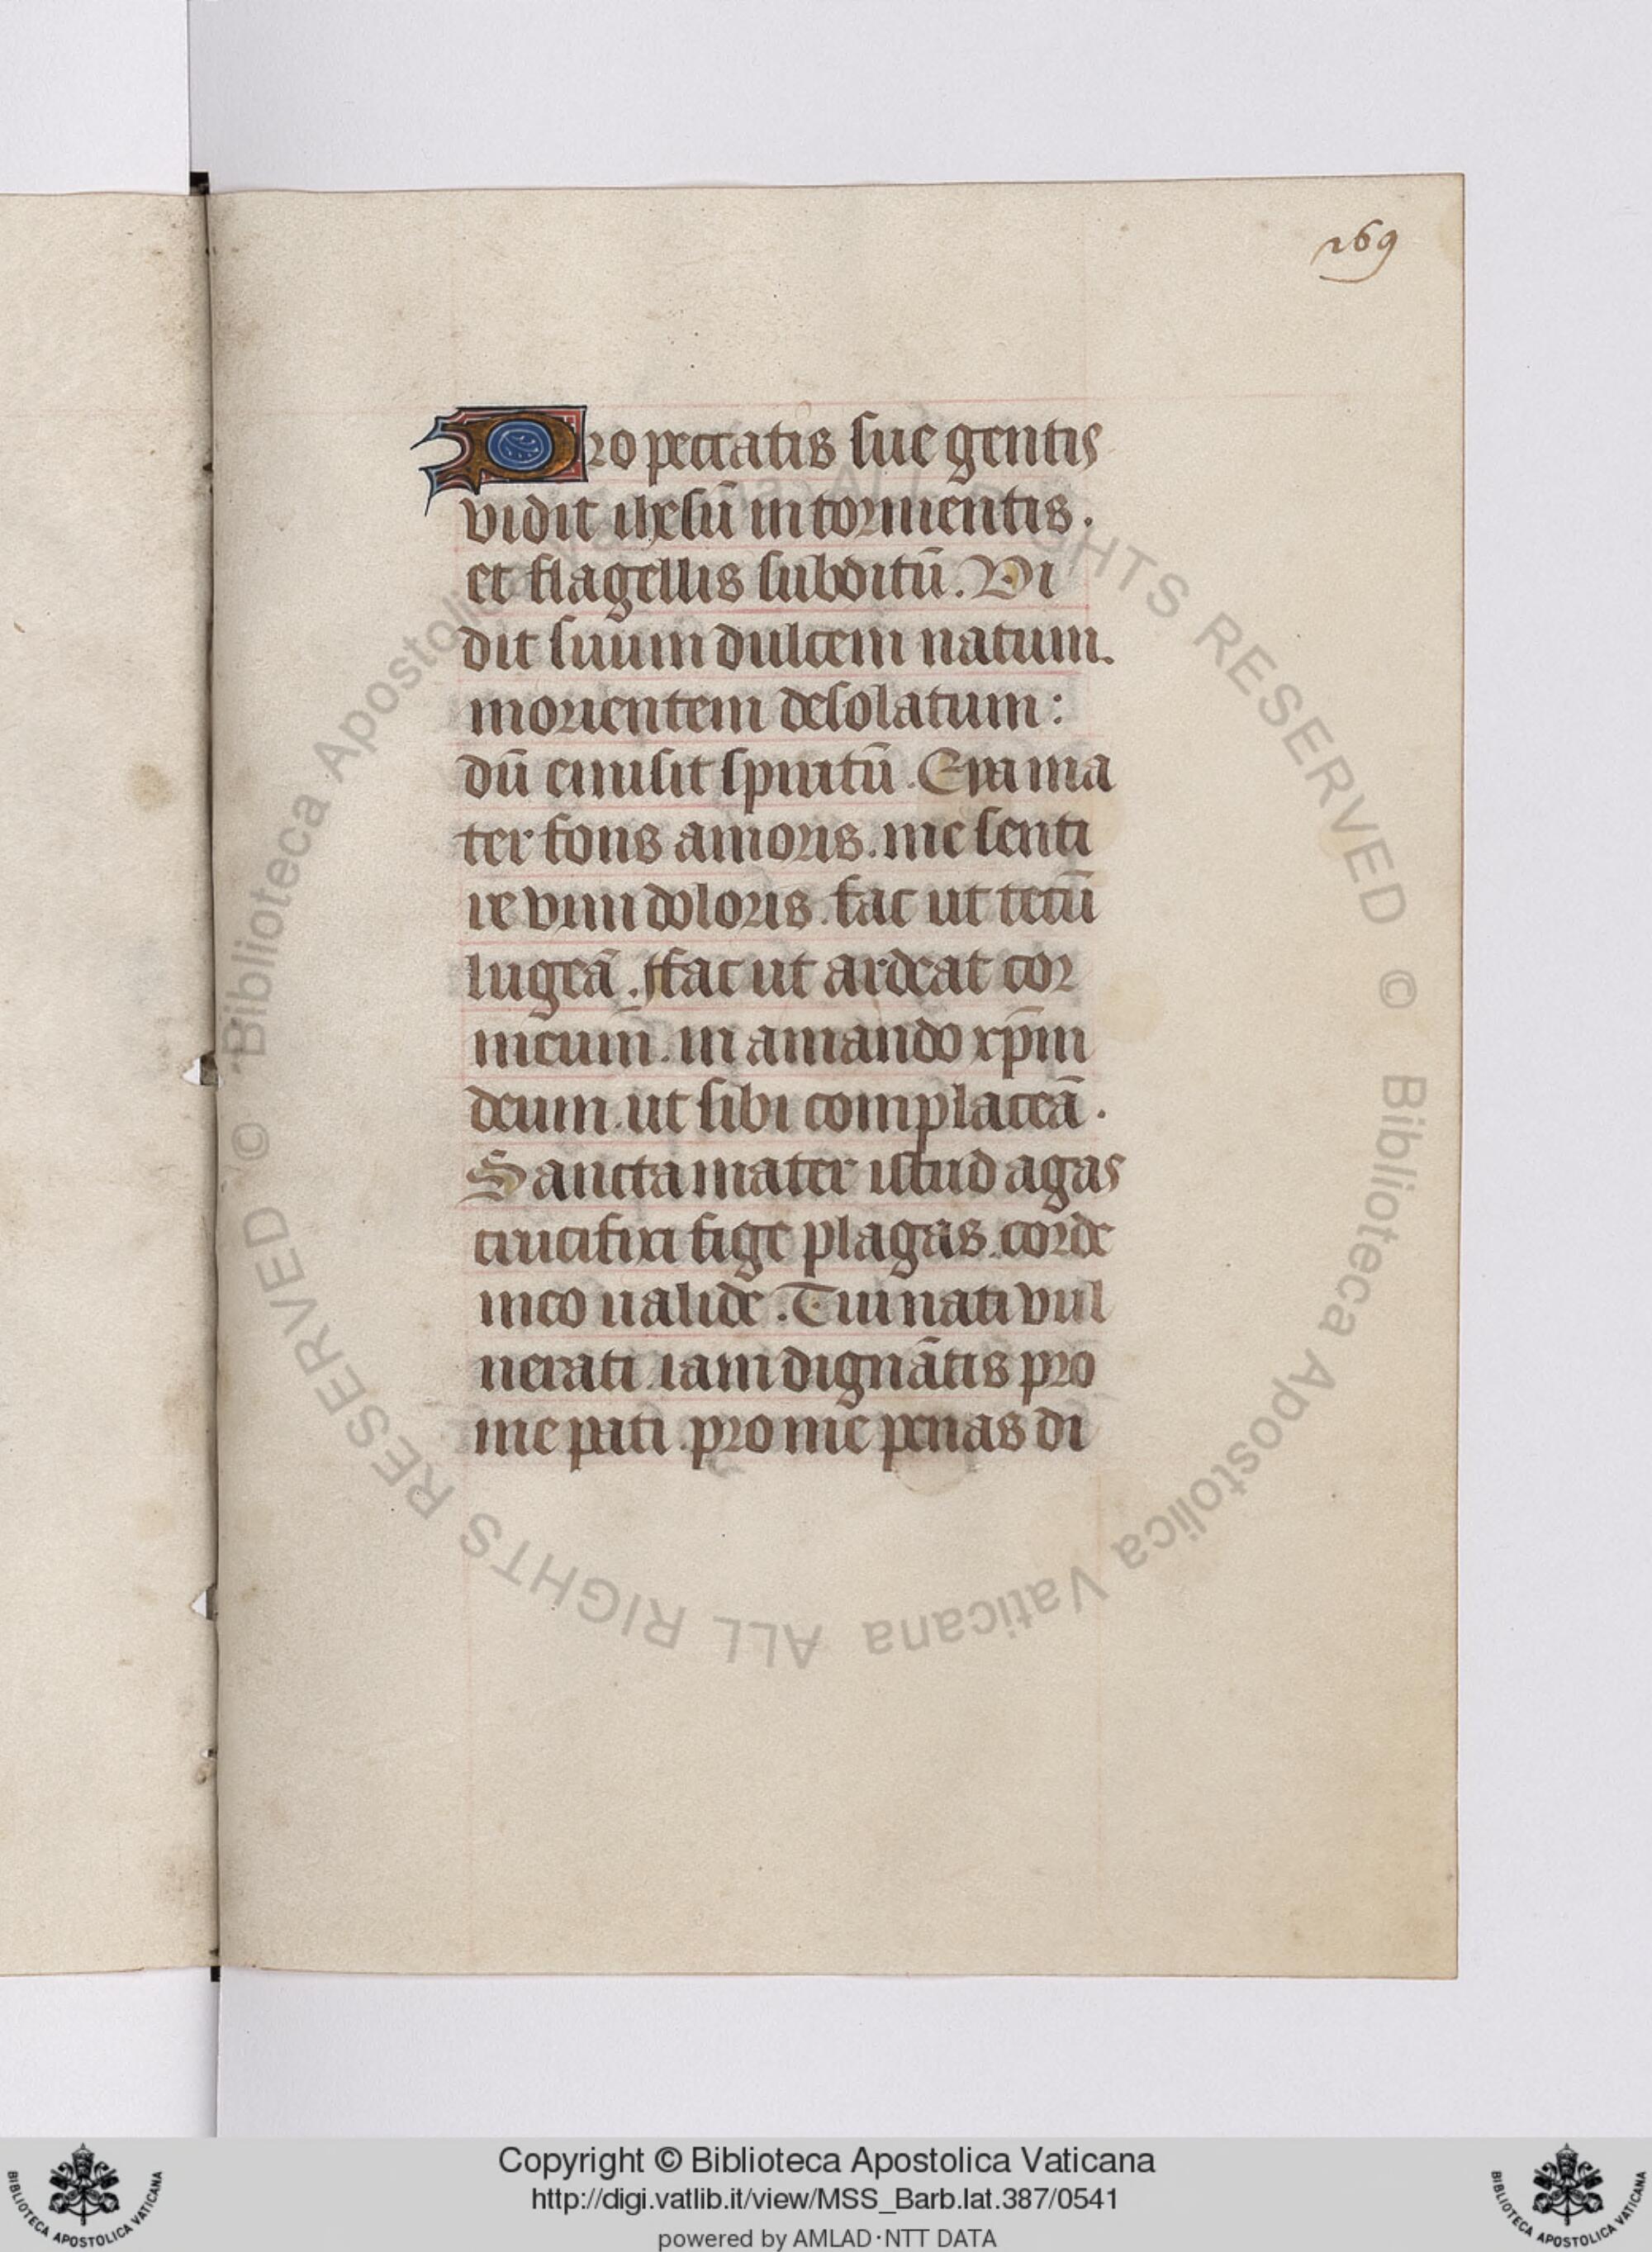 269
Pro peccatis sue gentis
vidit ihesū in tormentis.
et flagellis subditū. Vi
dit suum dulcem natum.
morientem desolatum:
dū emisit spiritū. Eya ma
ter fons amoris. me senti
re vim doloris. fac ut tecū
lugeā. Ffac ut ardeat cor
meum. in amando xp̄m
deum. ut sibi complaceā.
Sancta mater istud agas
crucifixi fige plagas. corde
meo ualide. Tui nati vul
nerati. iam dignātis pro
me pati. pro me penas di
© Biblioteca Apostolica Vaticana ALL RIGHTS RESERVED © Biblioteca Apostolica Vaticana ALL RIGHTS RESERVED
Copyright © Biblioteca Apostolica Vaticana
http://digi.vatlib.it/view/MSS_Barb.lat.387/0541
powered by AMLAD·NTT DATA
BIBLIOTECA APOSTOLICA VATICANA
BIBLIOTECA APOSTOLICA VATICANA